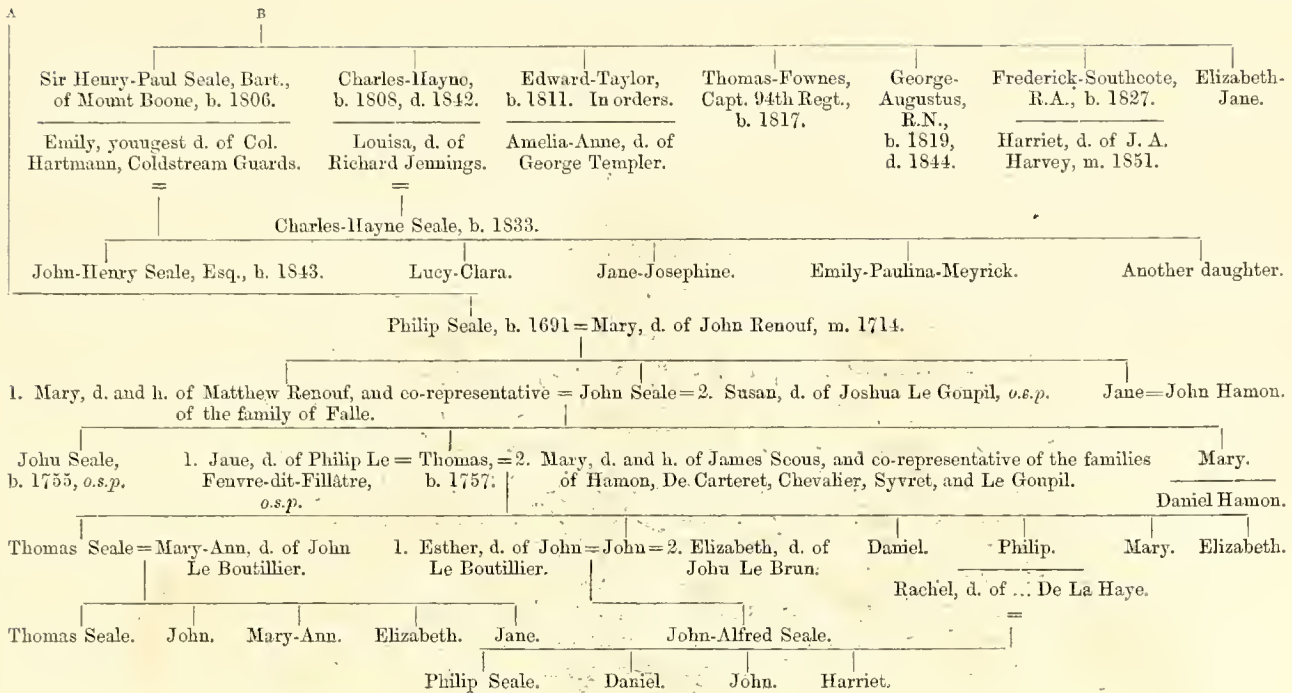 A B
Sir Henry-Paul Seale, Bart., of Mount Boone, b. 1806.
Emily, youngest d. of Col. Hartmann, Coldstream Guards.
=
Charles-Hayne, b. 1808, d. 1842.
Louisa, d. of Richard Jennings.
=
Edward-Taylor, b. 1811. In orders.
Amelia-Anne, d. of George Templer.
Thomas-Fownes, Capt. 94th Regt., b. 1817.
George-Augustus, R.N., b. 1819, d. 1844.
Frederick-Southcote, R.A., b. 1827.
Harriet, d. of J. A. Harvey, m. 1851.
Elizabeth-Jane.
Charles-Hayne Seale, b. 1833.
John-Henry Seale, Esq., b. 1843. Lucy-Clara. Jane-Josephine. Emily-Paulina-Meyrick. Another daughter.
Philip Seale, b. 1691 = Mary, d. of John Renouf, m. 1714.
1. Mary, d. and h. of Matthew Renouf, and co-representative = John Seale = 2. Susan, d. of Joshua Le Goupil, o.s.p. Jane = John Hamon.
of the family of Falle.
John Seale, 1. Jane, d. of Philip Le = Thomas, = 2. Mary, d. and h. of James Scous, and co-representative of the families Mary.
b. 1755, o.s.p. Feuvre-dit-Fillâtre, b. 1757. of Hamon, De Carteret, Chevalier, Syvret, and Le Goupil.
o.s.p. Daniel Hamon.
Thomas Seale = Mary-Ann, d. of John 1. Esther, d. of John = John = 2. Elizabeth, d. of Daniel. Philip. Mary. Elizabeth.
Le Boutillier. Le Boutillier. John Le Brun.
Rachel, d. of ... De La Haye.
=
Thomas Seale. John. Mary-Ann. Elizabeth. Jane. John-Alfred Seale.
Philip Seale. Daniel. John. Harriet.